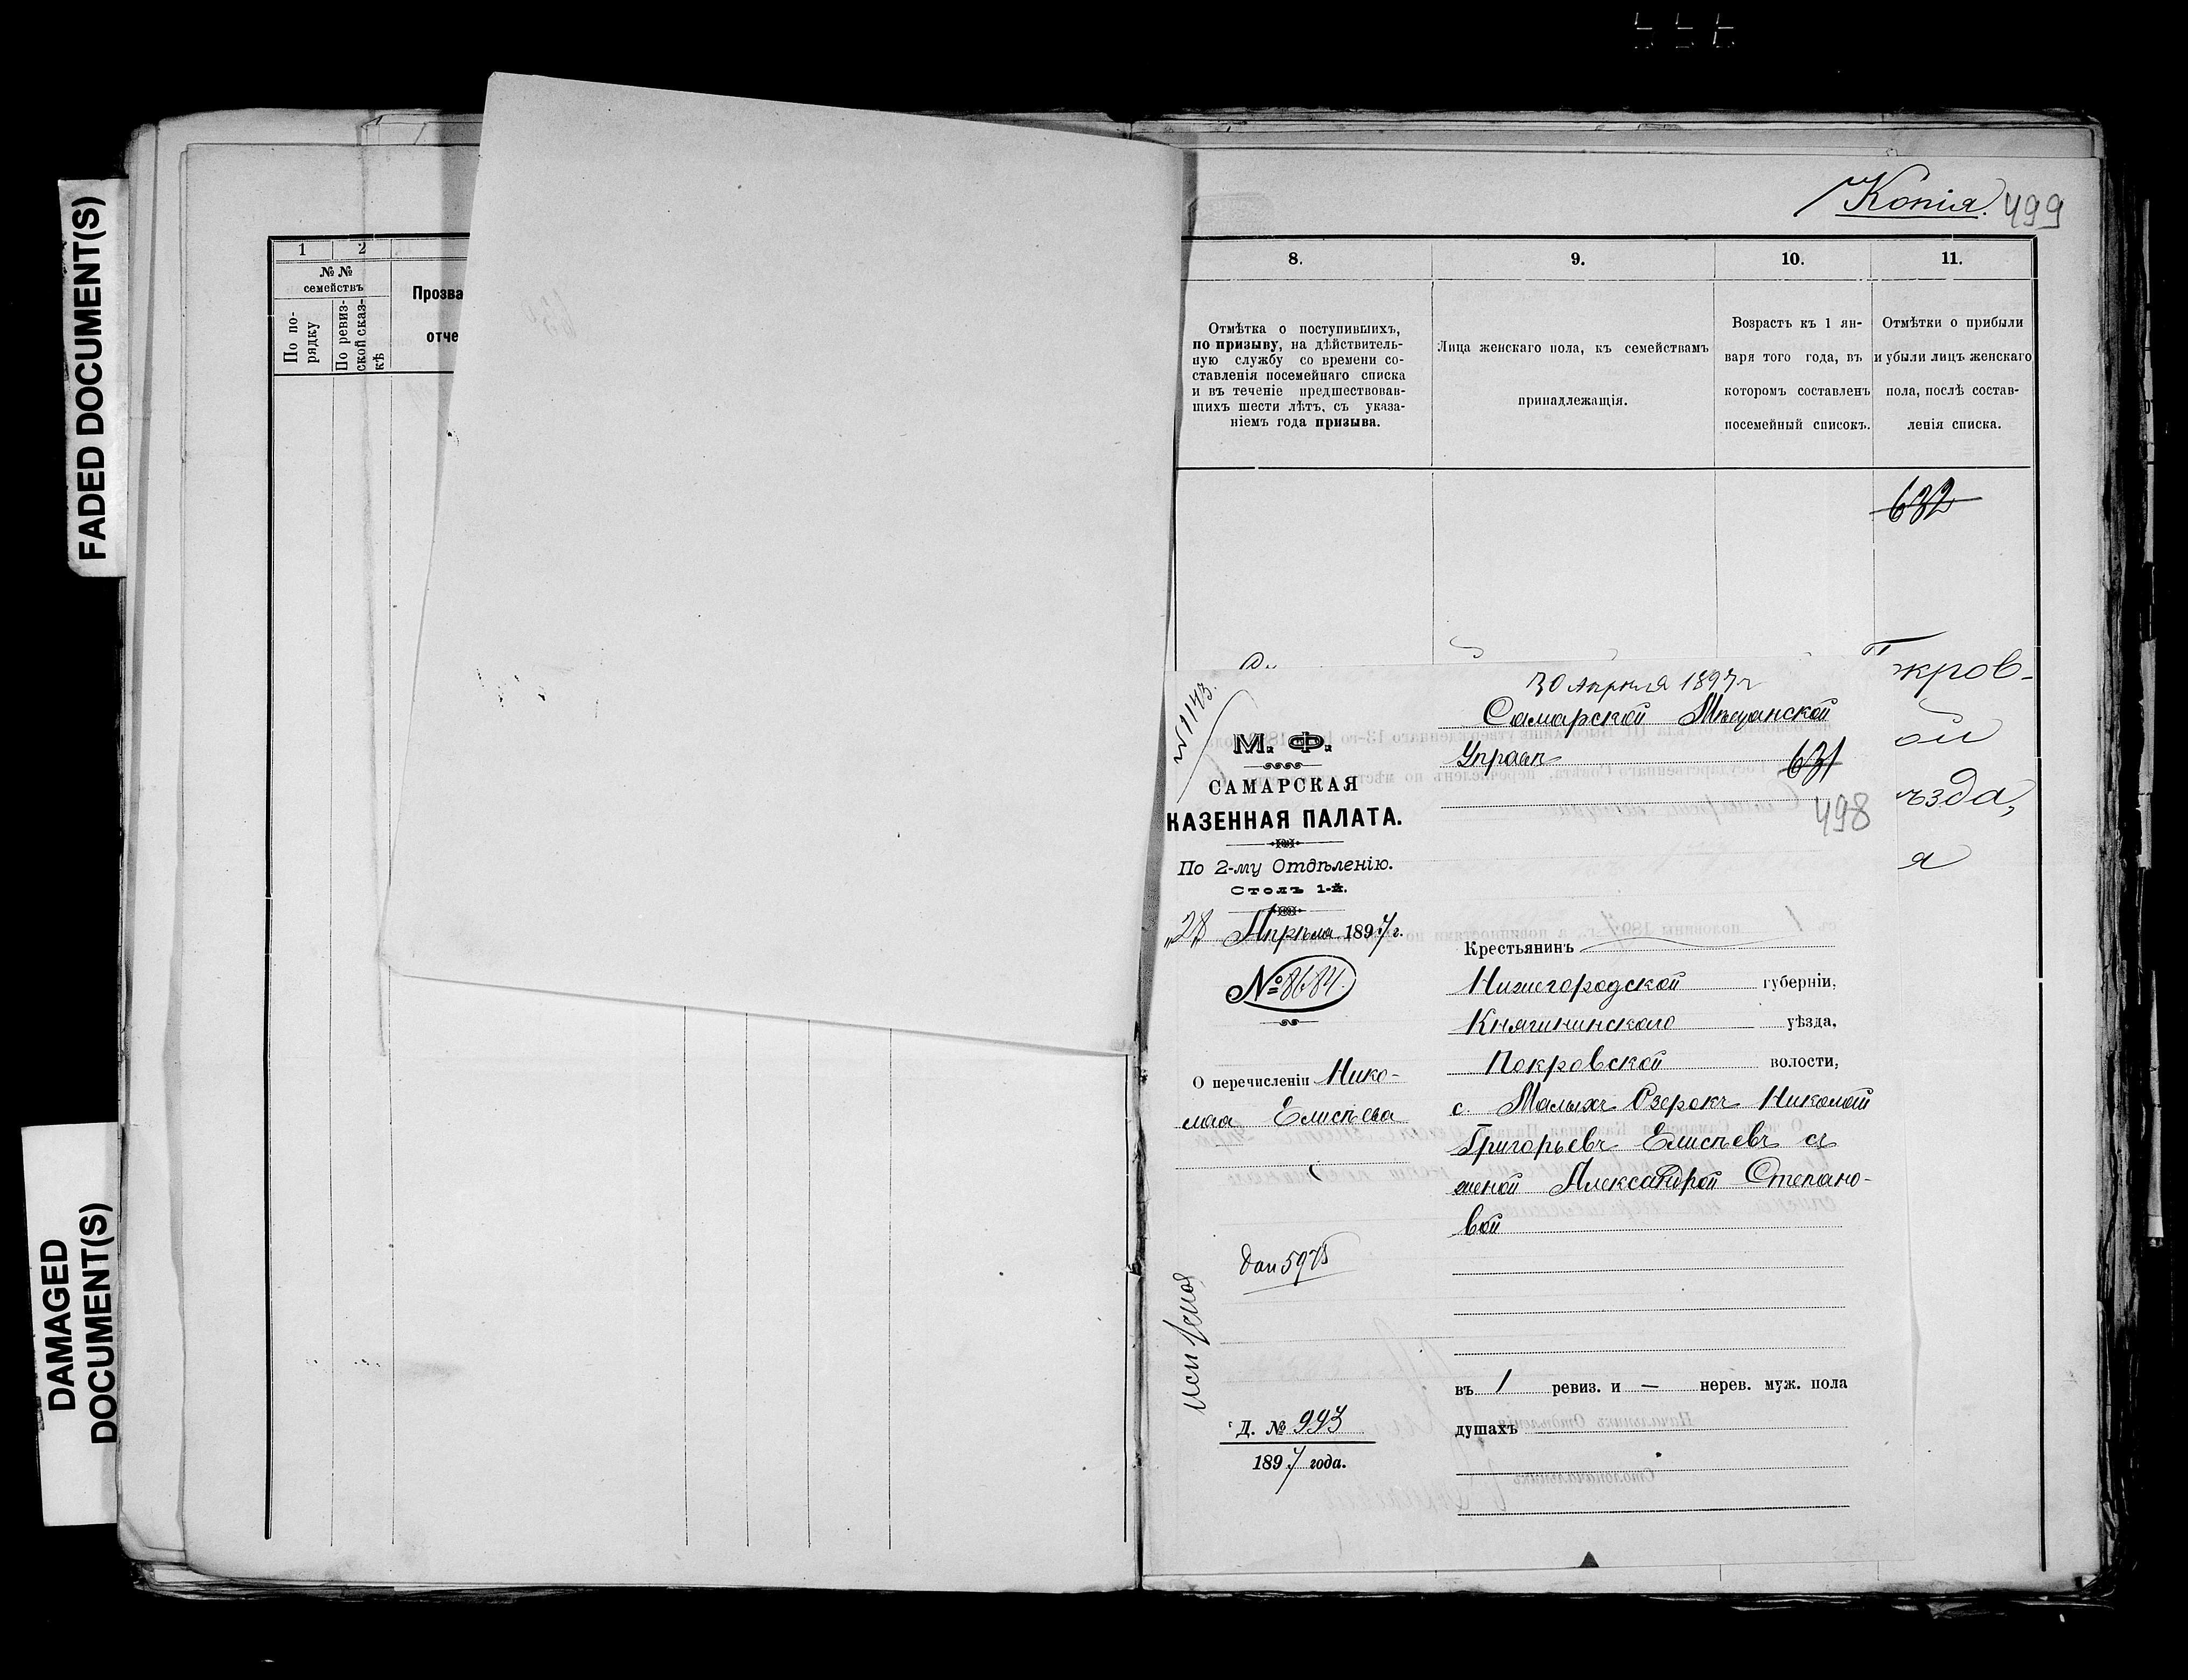 FADED DOCUMENT(S)
DAMAGED
DOCUMENT(S)
1
2
№ №
семействъ
По по-
рядку
По ревиз-
ской сказ-
кѣ
Прозва
отче
Копія.
499
8.
9.
10.
11.
Отмѣтка о поступившихъ,
по призыву, на дѣйствитель-
ную службу со времени со-
ставленія посемейнаго списка
и въ теченіе предшествовав-
щихъ шести лѣтъ, съ указа-
ніемъ года призыва.
Лица женскаго пола, къ семействамъ
принадлежащія.
Возрастъ къ 1 ян-
варя того года, въ
которомъ составленъ
посемейный списокъ.
Отмѣтки о прибыли
и убыли лицъ женскаго
пола, послѣ состав-
ленія списка.
632
кров-
ой
ѣзда,
я
№ 1143.
М. Ф.
САМАРСКАЯ
КАЗЕННАЯ ПАЛАТА.
По 2-му Отдѣленію.
Столъ 1-й.
„28 Апрѣля 1897 г.
№ 8684.
О перечисленіи Нико-
лая Елисѣева
дан 5975
Д. № 993
1897 года.
30 Апреля 1897 г
Самарской Мѣщанской
Управѣ
631
498
Крестьянинъ
Нижегородской губерніи,
Княгининского уѣзда,
Покровской волости,
с. Малыхъ Озерокъ Николай
Григорьевъ Елисѣевъ съ
женой Александрой Степано-
вой
въ 1 ревиз. и — нерев. муж. пола
душахъ